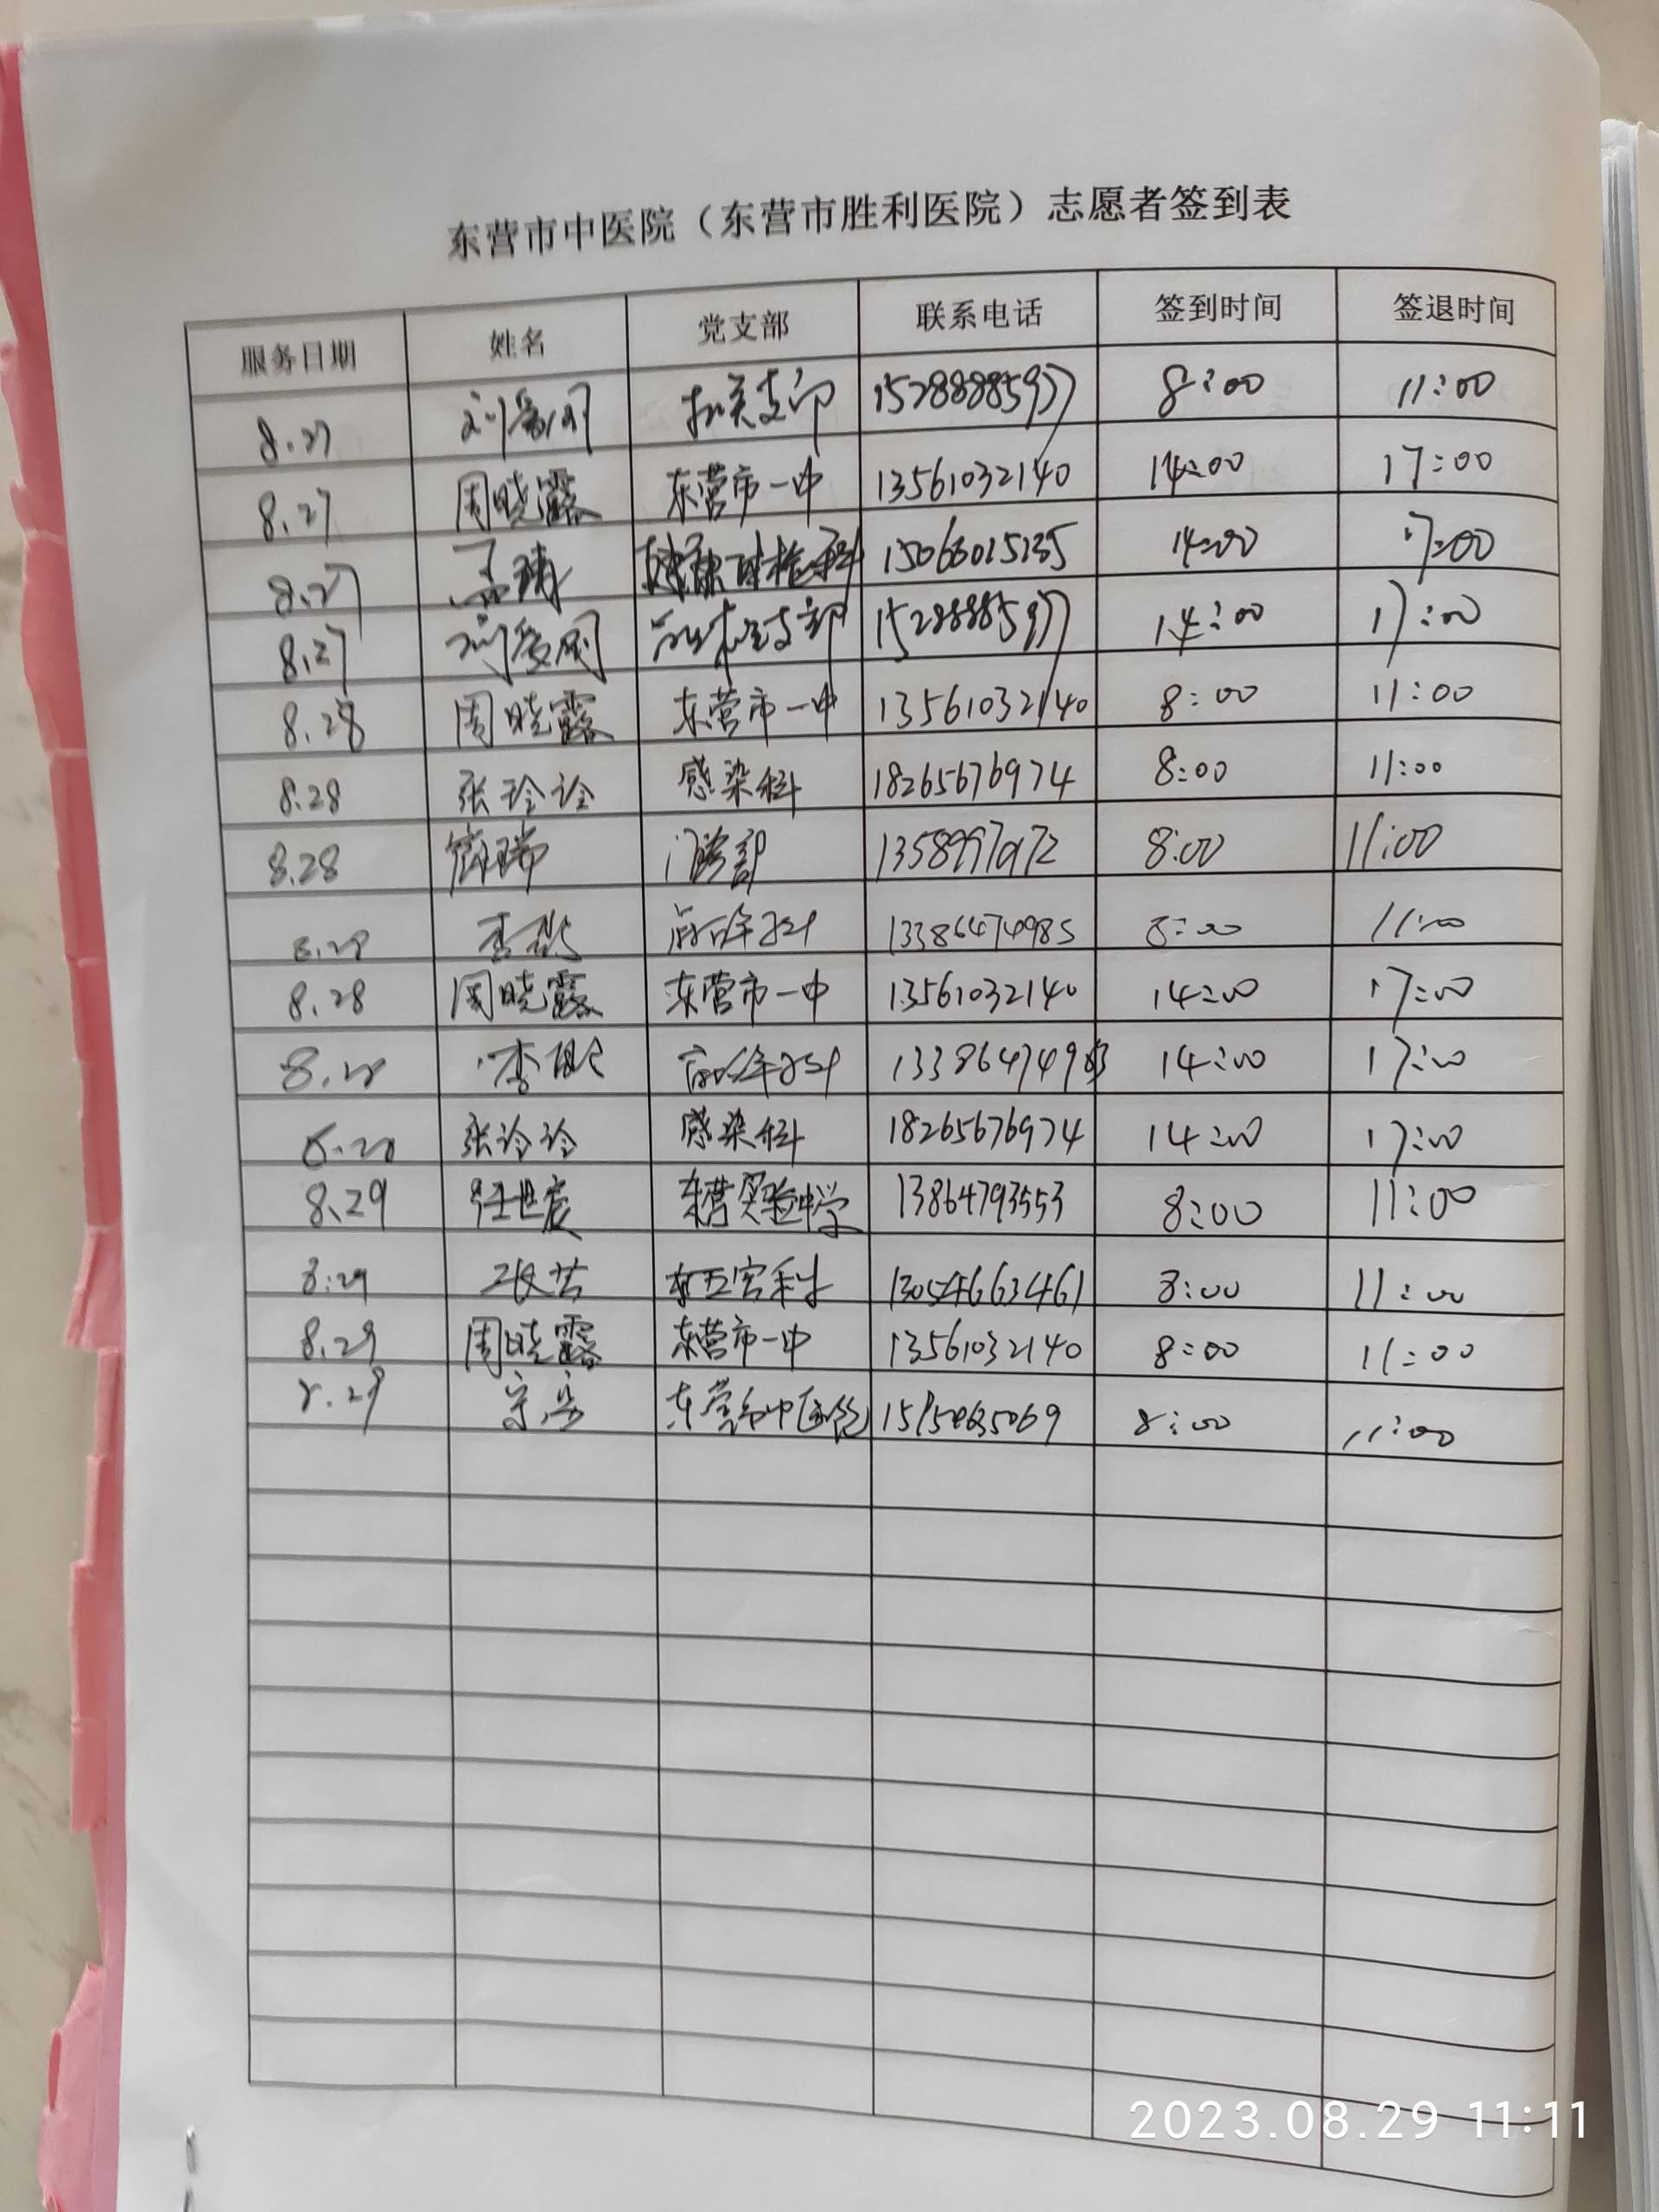 东营市中医院（东营市胜利医院）志愿者签到表
服务日期 姓名 党支部 联系电话 签到时间 签退时间
8.27 刘爱刚 机关支部 15288885977 8:00 11:00
8.27 周晓露 东营市一中 13561032140 14:00 17:00
8.27 孟 健康体检科 14:00 17:00
8.27 刘爱刚 支部 15288885977 14:00 17:00
8.28 周晓露 东营市一中 13561032140 8:00 11:00
8.28 张 感染科 18265676974 8:00 11:00
8.28 瑞 门诊部 8:00 11:00
8.28 李 8:00 11:00
8.28 周晓露 东营市一中 13561032140 14:00 17:00
8.28 李 14:00 17:00
8.28 张 感染科 18265676974 14:00 17:00
8.29 任世宸 东营实验中学 13864793553 8:00 11:00
8.29 13054663461 8:00 11:00
8.29 周晓露 东营市一中 13561032140 8:00 11:00
8.29 东营市中医院 8:00 11:00
2023.08.29 11:11